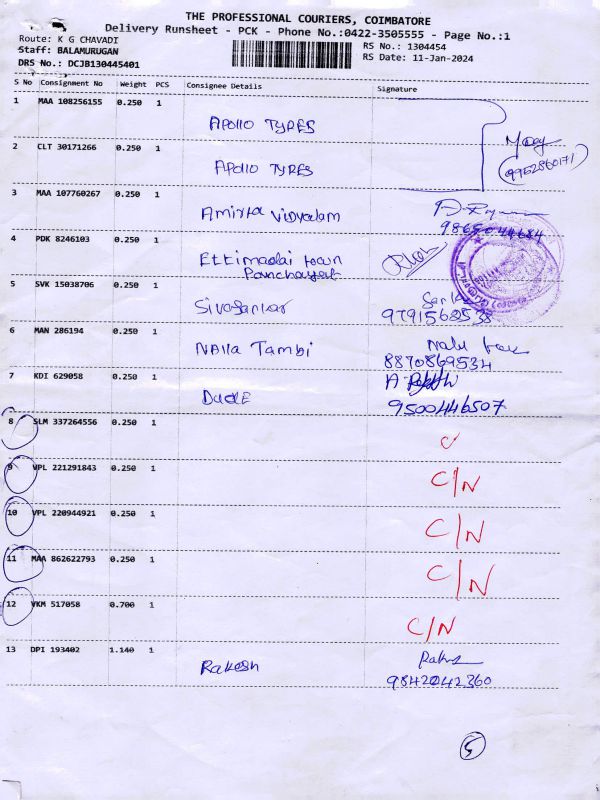 THE PROFESSIONAL COURIERS, COIMBATORE
Delivery Runsheet - PCK - Phone No.:0422-3505555 - Page No.:1
Route: K G CHAVADI
RS No.: 1304454
Staff: BALAMURUGAN
RS Date: 11-Jan-2024
DRS No.: DCJB130445401
S No Consignment No Weight PCS Consignee Details Signature
1 MAA 108256155 0.250 1 APOLLO TYRES
9952860171
2 CLT 30171266 0.250 1 APOLLO TYRES
3 MAA 107760267 0.250 1 Amirta vidyalam
9865044684
4 PDK 8246103 0.250 1 Ettimadai town
Panchayat
5 SVK 15038706 0.250 1 Sivasankar
9791568538
6 MAN 286194 0.250 1 NAlla Tambi
8870869534
7 KDI 629058 0.250 1 DUDE
9500446507
8 SLM 337264556 0.250 1
9 VPL 221291843 0.250 1 C/N
10 VPL 220944921 0.250 1 C/N
11 MAA 862622793 0.250 1 C/N
12 VKM 517058 0.700 1 C/N
13 DPI 193402 1.140 1 Rakesh
9842042360
5